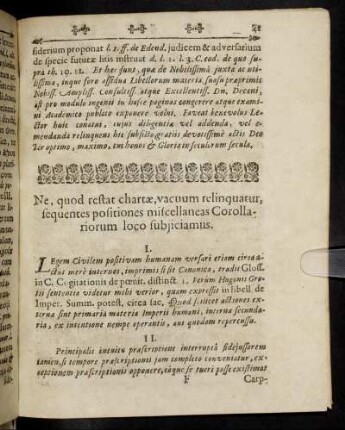 41
siderium proponat l. 1. ff. de Edend. judicem & adversarium
de specie futuræ litis instruat d. l. 1. l. 3. C. eod. de quo su-
pra th. 10. 12. Et hæc sunt, quæ de Nobilissima juxta ac uti-
lissima, inque foro assidua Libellorum materia, suasu præprimis
Nobiliss. Ampliss. Consultiss. atque Excellentiss. Dn. Decani,
pro modulo ingenii in hasce paginas congerere atque examini
Academico publico exponere volui. Faveat benevolus Le-
ctor huic conatui, cujus diligentiæ vel addenda, vel e-
mendanda relinquens hic subsisto, gratiis devotissimè actis Deo
Ter optimo, maximo, cui honos & Gloria in seculorum secula.
Ne, quod restat chartæ, vacuum relinquatur,
sequentes positiones miscellaneas Corolla-
riorum loco subjiciamus.
I.
LEgem Civilem positivam humanam versari etiam circa a-
ctus merè internos, imprimis si sit Canonica, tradit Gloss.
in C. Cogitationis de pœnit. distinct. 1. Verùm Hugonis Gro-
tii sententia videtur mihi verior, quam expressit in libell. de
Imper. Summ. potest. circa sac. Quod scilicet actiones ex-
ternæ sint primaria materia Imperii humani, internæ secunda-
ria, ex intentione nempe operantis, aut quadam repercussu.
II.
Principalis intuitu præscriptione interruptâ fidejussorem
tamen, si tempore præscriptionis jam completo conveniatur, ex-
ceptionem præscriptionis opponere, eâque se tueri posse existimat
F
Carp-